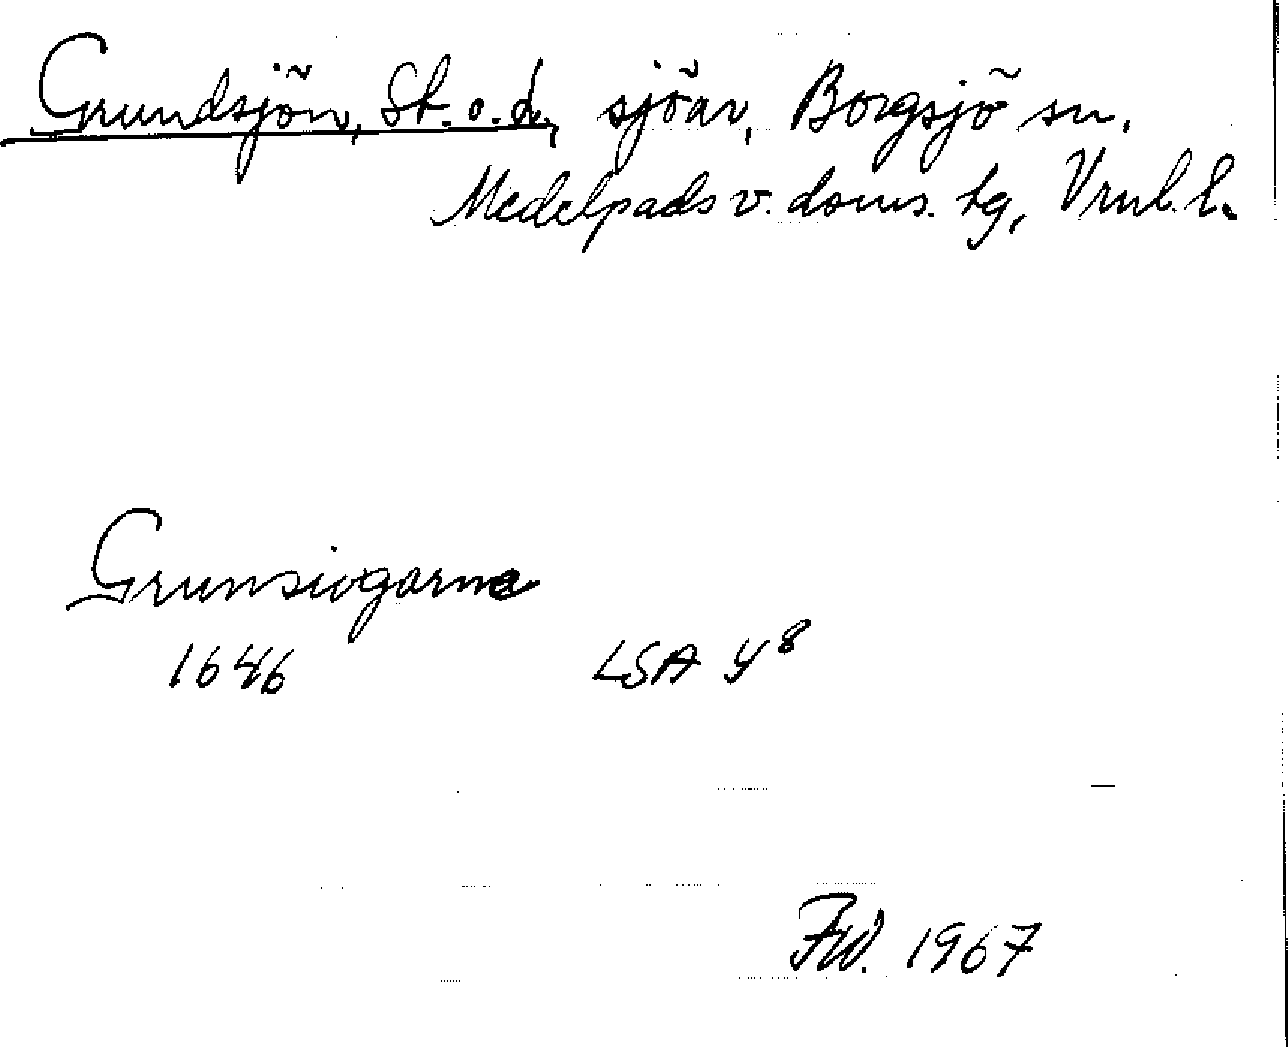 Grundsjön, St. o. L., sjöar, Borgsjö sn.
Medelpads v. doms. tg, Vrnl. l.
Grunsiogarna
1646 LSA Y 8
FW. 1967